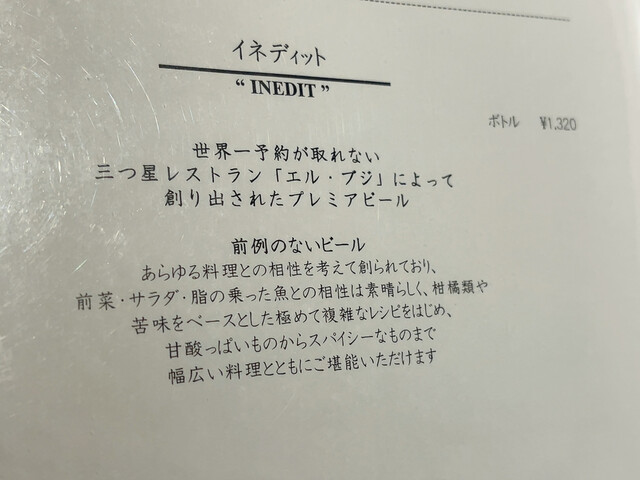 イネディット
“ INEDIT ”
ボトル ¥1,320
世界一予約が取れない
三つ星レストラン「エル・ブジ」によって
創り出されたプレミアビール
前例のないビール
あらゆる料理との相性を考えて創られており、
前菜・サラダ・脂の乗った魚との相性は素晴らしく、柑橘類や
苦味をベースとした極めて複雑なレシピをはじめ、
甘酸っぱいものからスパイシーなものまで
幅広い料理とともにご堪能いただけます